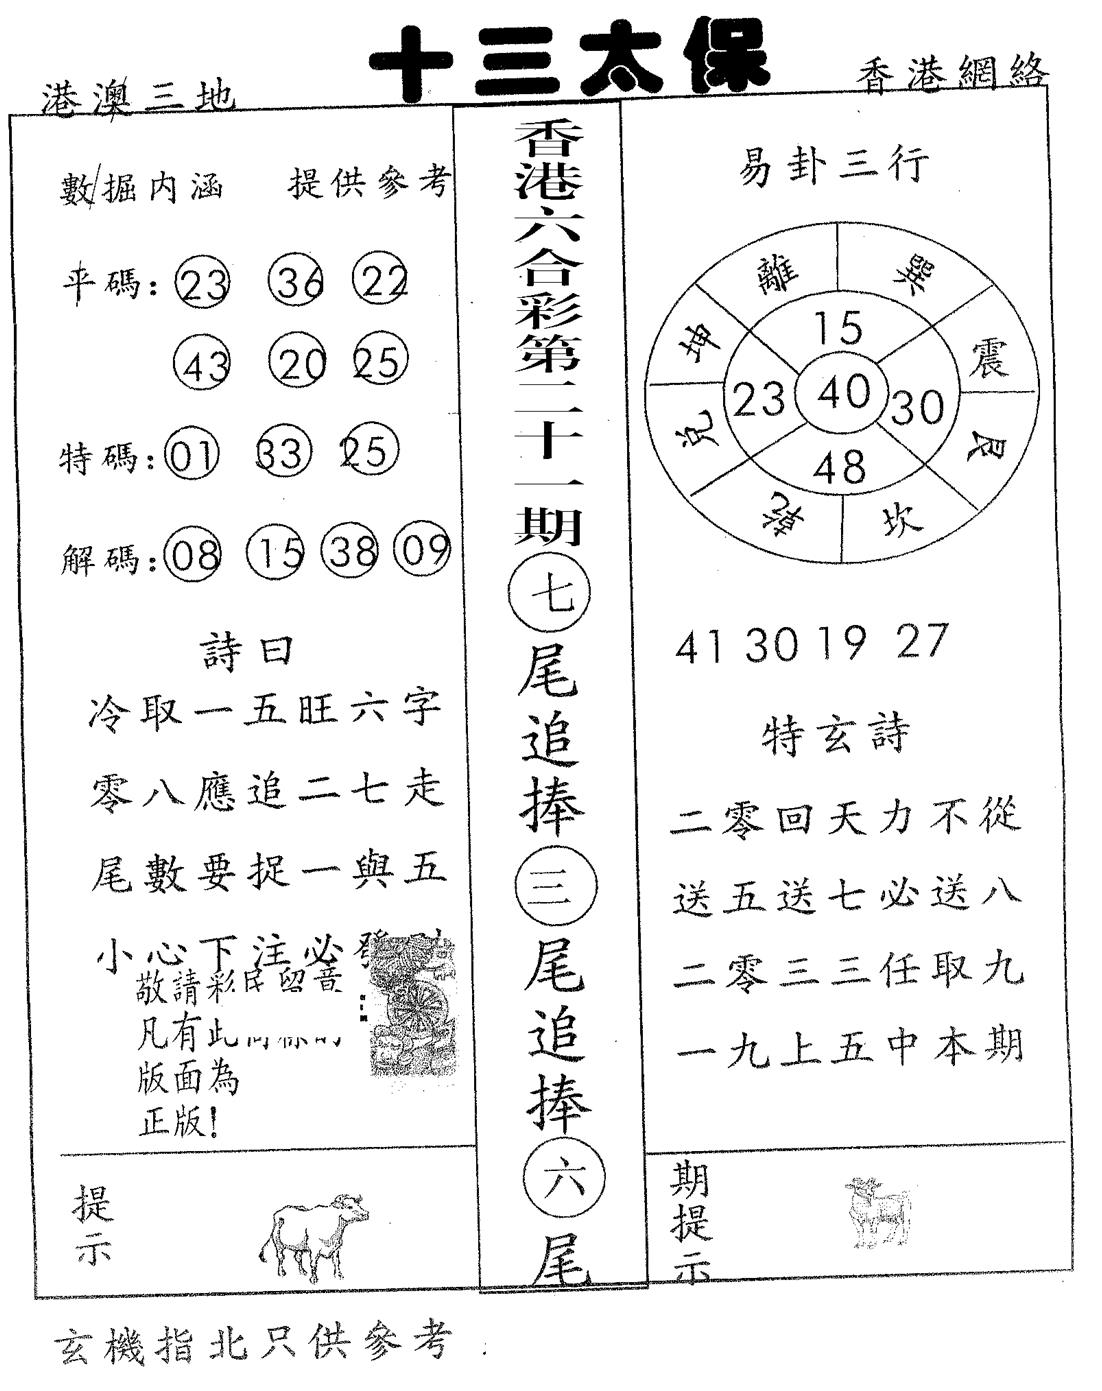 十三太保
港澳三地
香港網絡
數掘内涵 提供參考
平碼：23 36 22
43 20 25
特碼：01 33 25
解碼：08 15 38 09
詩曰
冷取一五旺六字
零八應追二七走
尾數要捉一與五
小心下注必發
敬請彩民留意
凡有此商標的
版面為
正版！
提示
香港六合彩第二十一期
七尾追捧三尾追捧六尾
易卦三行
離 巽
坤 震
兌 艮
乾 坎
15
23 40 30
48
41 30 19 27
特玄詩
二零回天力不從
送五送七必送八
二零三三任取九
一九上五中本期
期提示
玄機指北只供參考